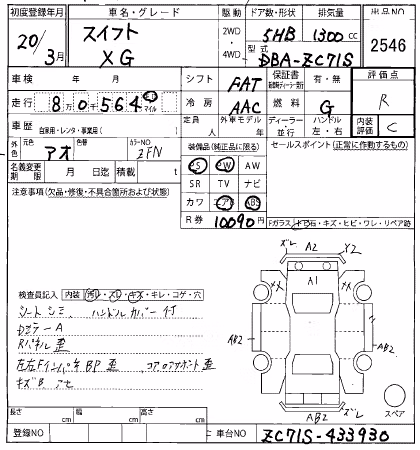 初度登録年月 車名・グレード 駆動 ドア数・形状 排気量 出品NO
20/3月 スイフト XG 2WD・4WD 5HB 1300 CC 2546
型式 DBA-ZC71S
車検 年 月 シフト FAT 保証書 有・無 評価点
走行 8万0千564 km マイル 冷房 AAC 燃料 G R
車歴 自家用・レンタ・事業用( ) 定員 人 外車モデル 年 ディーラー 並行 ハンドル 左・右 内装評価 C
外色 元色 アオ 色替 カラーNO ZFN 装備品(純正品に限る) セールスポイント(正常に作動するもの)
名義変更期限 月 日迄 積載 t PS PW AW
注意事項(欠品・修復・不具合箇所および状態) SR TV ナビ
カワ エアB ABS
R券 10090円 Fガラス・トビ石・キズ・ヒビ・ワレ・リペア跡
ズレ A2 Y2
A1
メメ メメ
AB2 AB2
検査員記入 内装 汚レ・スレ・キズ・キレ・コゲ・穴
シートシミ ハンドルカバー付
Rパネル歪
左右Fインパネ BP 歪 コアサポート歪
キズB アセ
AB2 ズレ
スペア
長さ cm 幅 cm 高さ cm
登録NO 車台NO ZC71S-433930